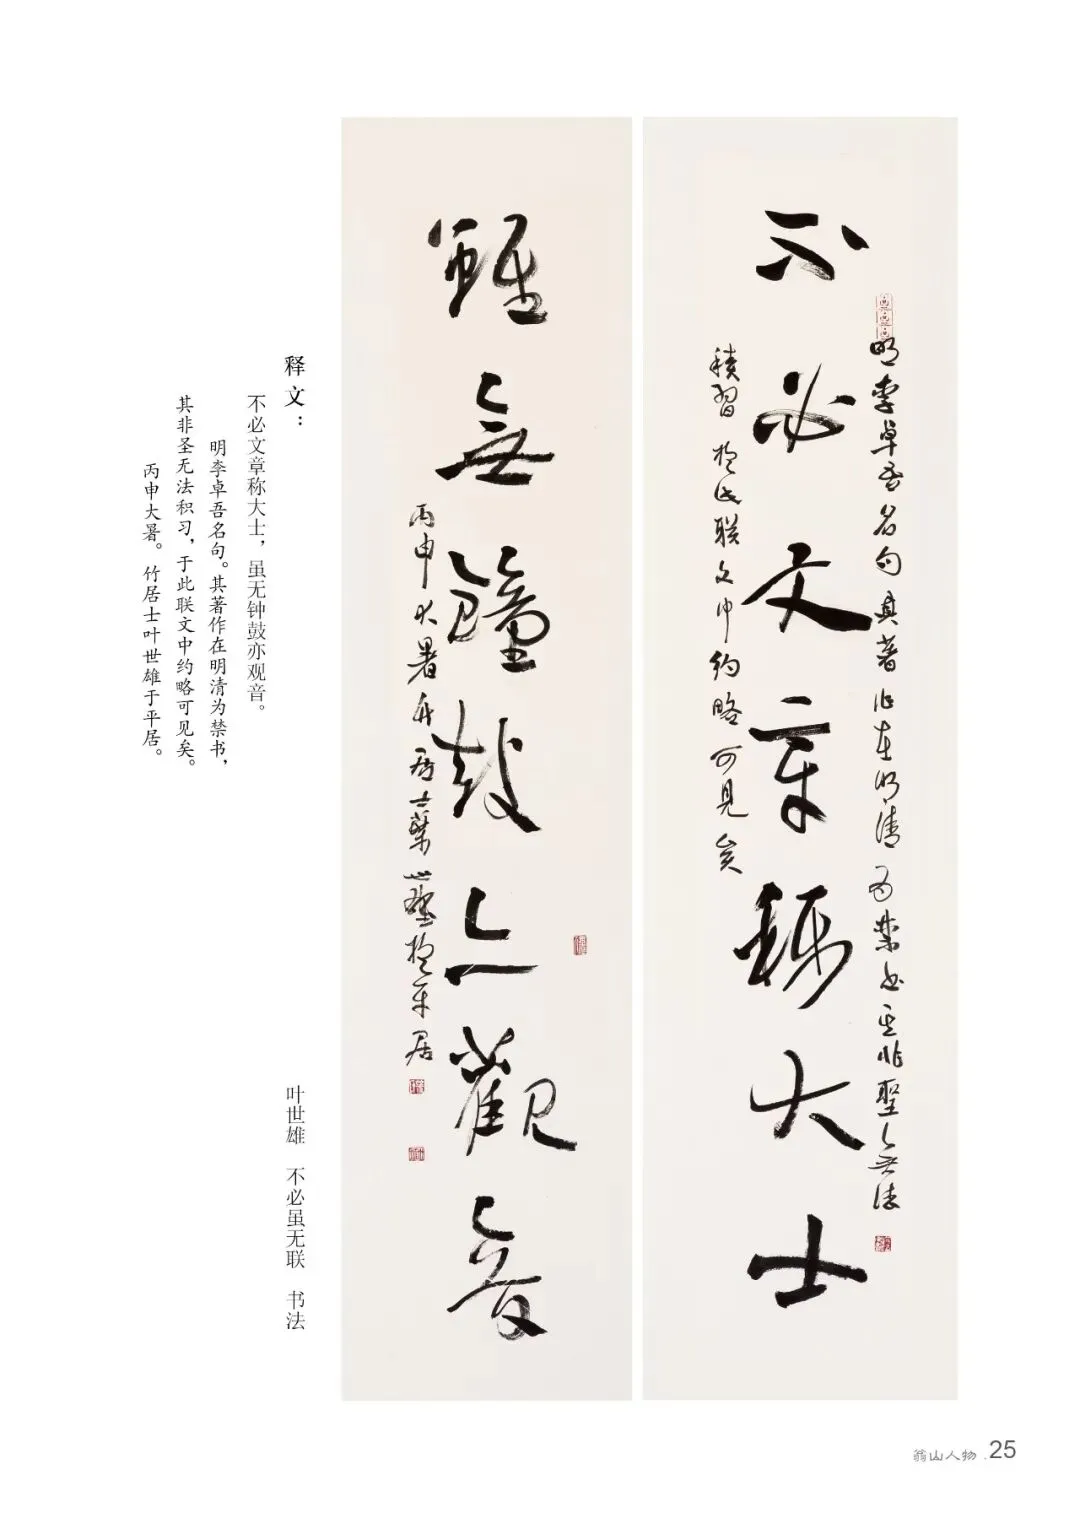 不必文章稱大士
明李卓吾名句其著作在明清為禁書其非聖無法
積習於此联文中約略可見矣
雖無鐘鼓亦觀音
丙申大暑竹居士葉世雄於平居
释文：
不必文章称大士，虽无钟鼓亦观音。
明李卓吾名句。其著作在明清为禁书，
其非圣无法积习，于此联文中约略可见矣。
丙申大暑。竹居士叶世雄于平居。
叶世雄 不必虽无联 书法
翁山人物 . 25